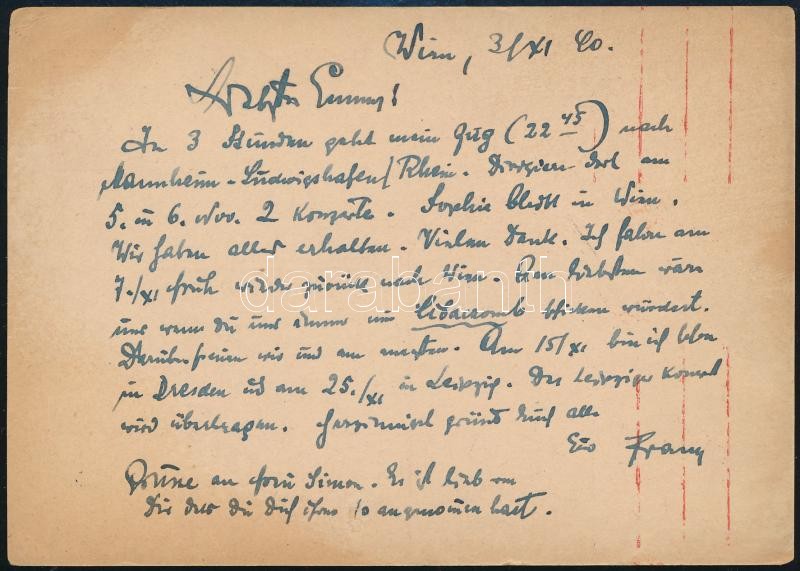 Wien, 3/XI 40.
Liebste Emmy!
In 3 Stunden geht mein Zug (22 45) nach
Mannheim-Ludwigshafen/Rhein. Dirigiere dort am
5. u 6. Nov. 2 Konzerte. Sophie bleibt in Wien.
Wir haben alles erhalten. Vielen Dank. Ich fahre am
7./XI früh wieder zurück nach Wien. Am liebsten wäre
uns wenn du uns immer nur schicken würdest.
Darüber freuen wir uns am meisten. Am 15/XI bin ich
in Dresden ud am 25./XI in Leipzig. Das Leipziger Konzert
wird übertragen. Herzinnigst grüsst Euch alle
Euer Franz
Grüsse an Frau Simon. Es ist lieb von
Dir dass du Dich ihrer so angenommen hast.
darabanth